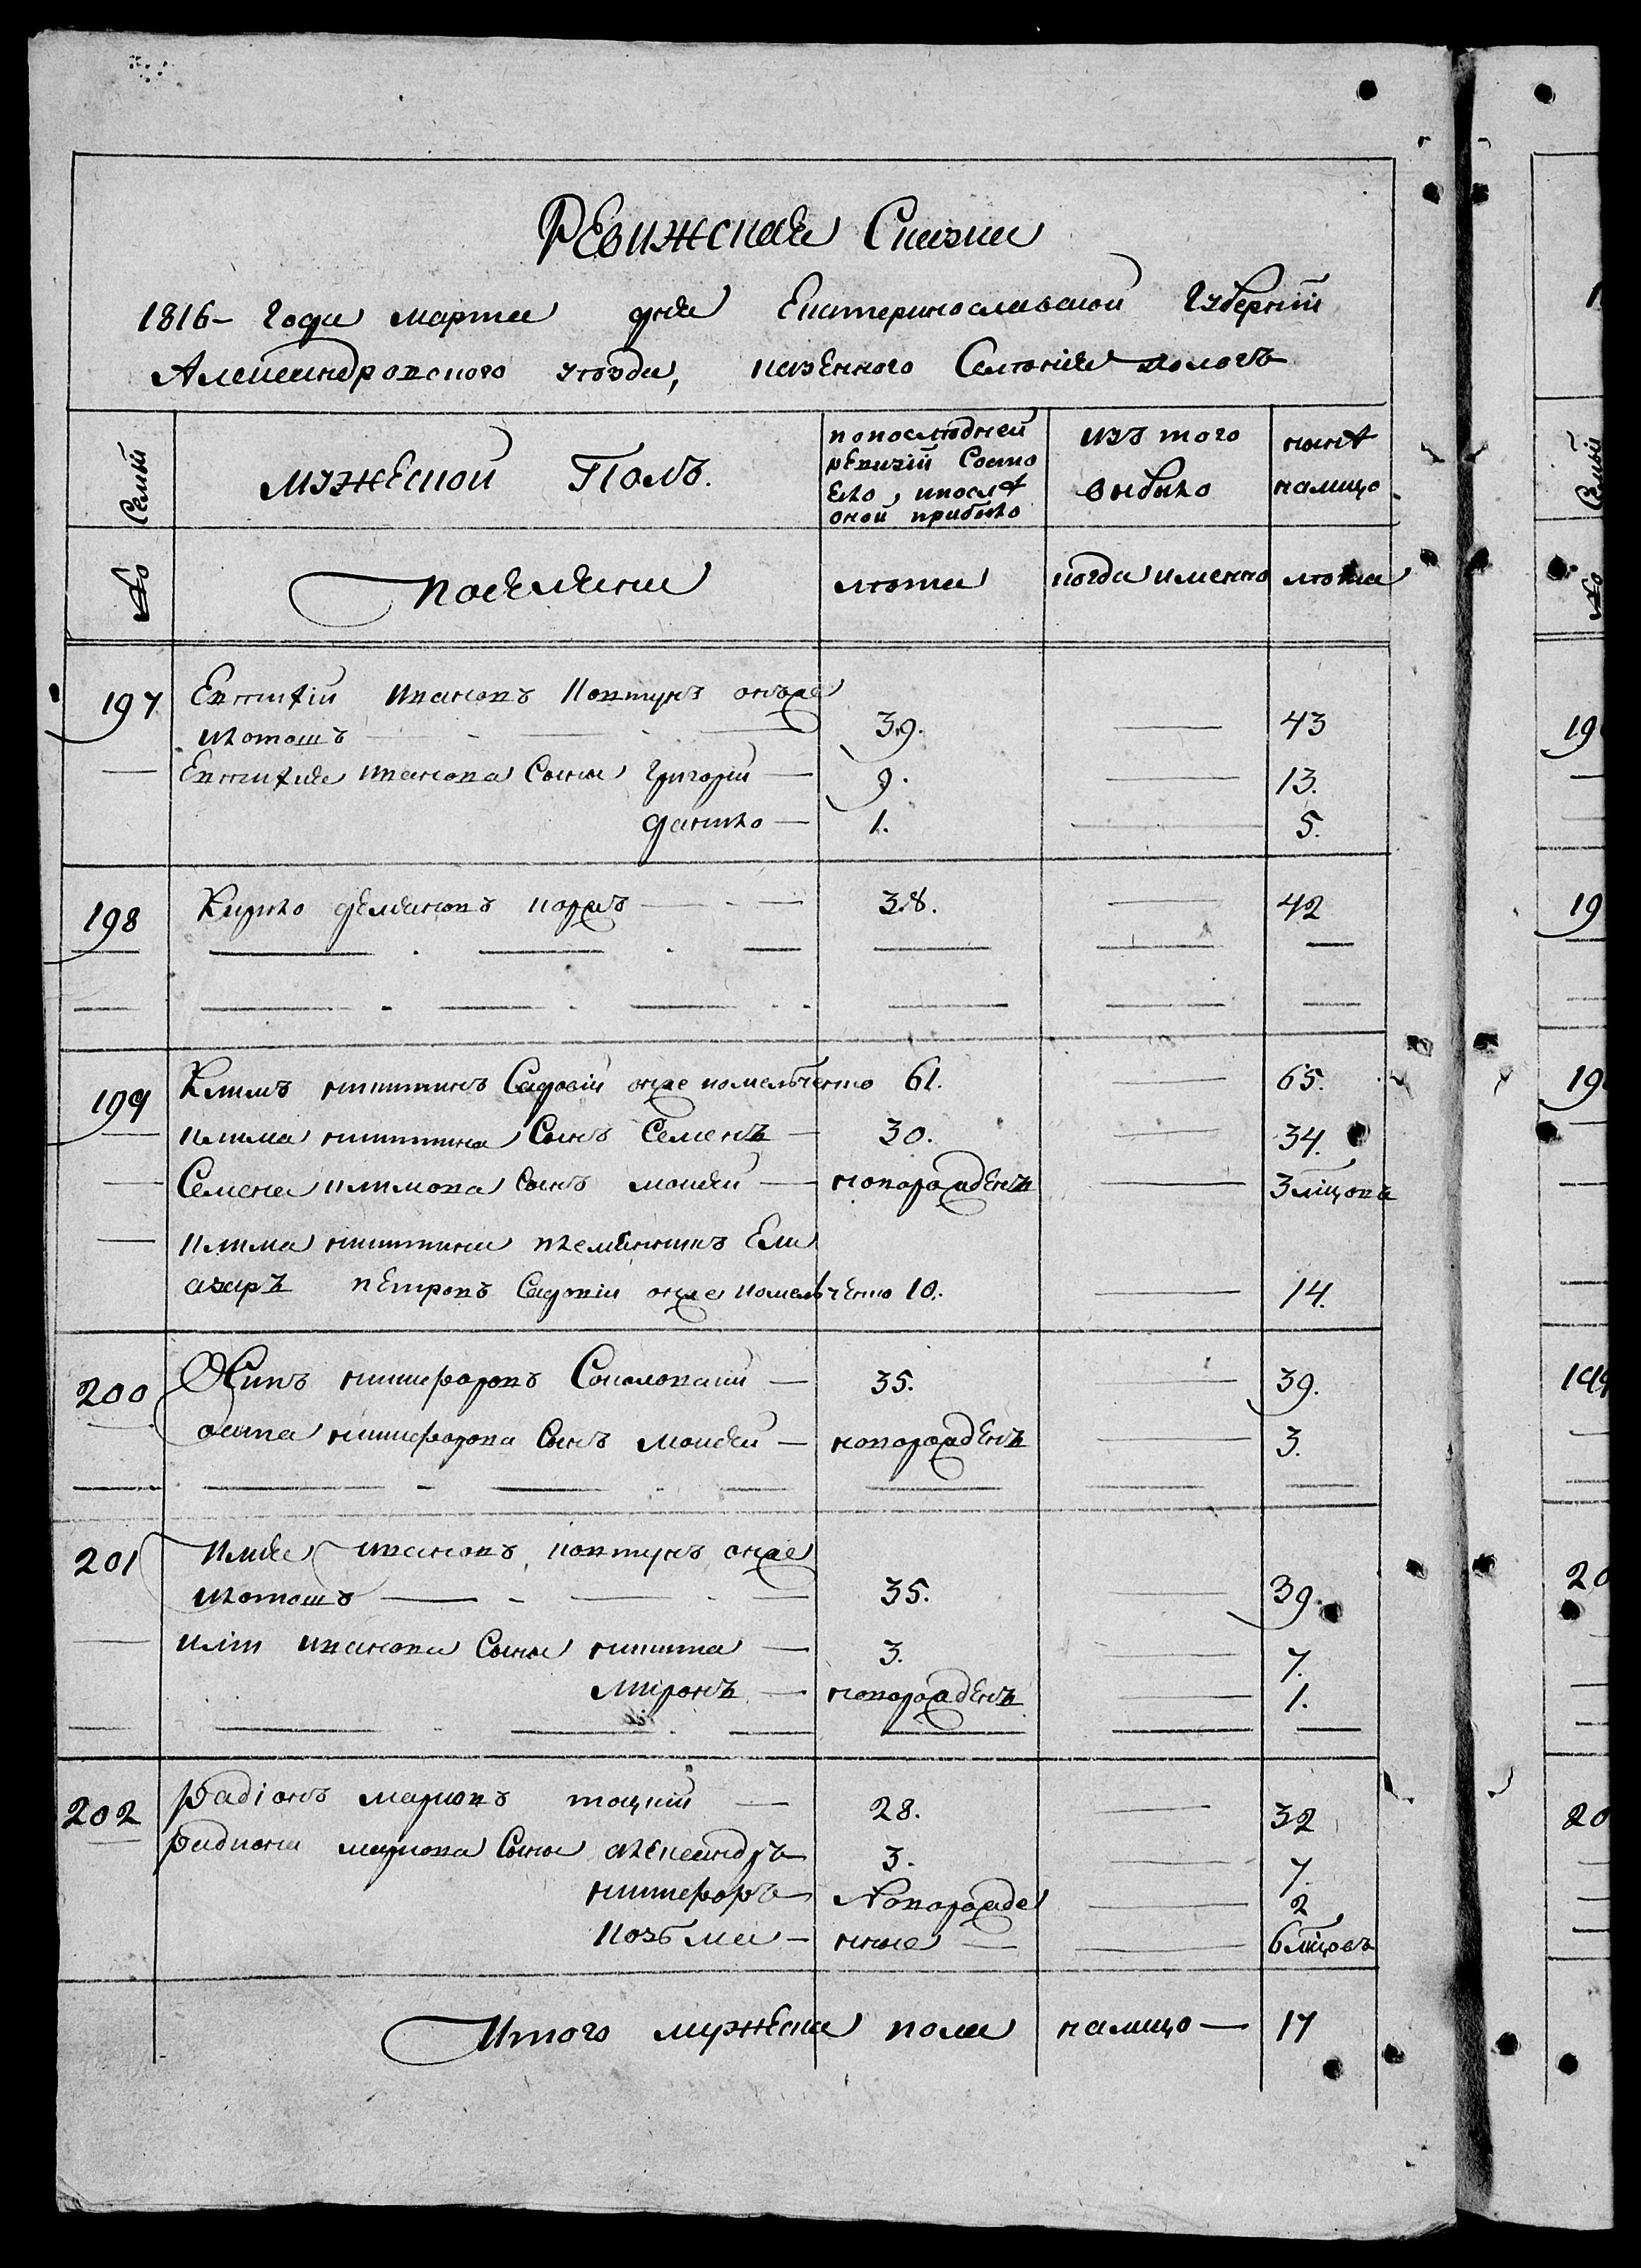 Ревижская Сказка
1816- года марта дня Екатеринославской Губерніи
Александровского уѣзда, казенного Селѣнія пологъ
Семьи
мужеской Полъ.
попослѣдней
ревизіи Состо
яло, ипослѣ
оной прибыло
изъ того
выбыло
нынѣ
налицо
№
поселяни
лѣта
когда именно
лѣта
197 Евтифій Ивановъ Ковтунъ онъже
Илюташъ 39. 43
Евтифія Иванова Сыны Григорій 9. 13.
Данило 1. 5.
198 Кирило Демяновъ Коржъ 38. 42
199 Климъ никитинъ Садовій онже комельченко 61. 65.
клима никитина Сынъ Семенъ 30. 34.
Семена климова Сынъ Моисей новорожденъ 3 мѣцовъ
клима никитина племянникъ Ели
азаръ петровъ Садовій онже комельченко 10. 14.
200 Осипъ никифоровъ Соколовскій 35. 39.
осипа никифорова Сынъ моисей новорожденъ 3.
201 Илія ивановъ ковтунъ онже
35. 39.
иліи иванова Сыны никита 3. 7.
миронъ новорожденъ 1.
202 радіонъ марковъ тоцкій 28. 32
радиона маркова Сыны александръ 3. 7.
никифоръ Новорожде 2
козьма нные 6 мѣцовъ
Итого мужеска пола налицо 17
Семьи
№